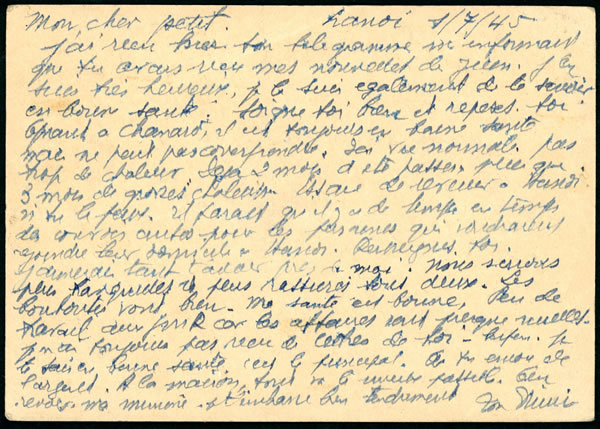 Mon cher petit. Hanoi 1/7/45
J'ai reçu hier ton télégramme m'informant
que tu avais reçu mes nouvelles de Juin. J'en
suis très heureux, je suis également de te savoir
en bonne santé. Soigne toi bien et reposes toi.
Quant à Chanard, il est toujours en bonne santé
mais ne peut pas correspondre. Ici vie normale. pas
trop de chaleur. Déjà 2 mois d'été passés, plus que
3 mois de grosses chaleurs. de revenir à Hanoi
si tu le peux. Il paraît qu'il y a de temps en temps
des autos pour les personnes qui voudraient
rejoindre leur domicile à Hanoi. Renseignes toi.
J'aimerais tant t'avoir près de moi. Nous serions
plus tranquilles tous deux. Les
vont bien. Ma santé est bonne. Peu de
travail car les affaires sont presque nulles.
Je n'ai toujours pas reçu de lettres de toi - enfin je
te sais en bonne santé, c'est le principal. As tu encore de
l'argent. A la maison, tout va le mieux possible.
ma mémoire et t'embrasse bien tendrement
Ton